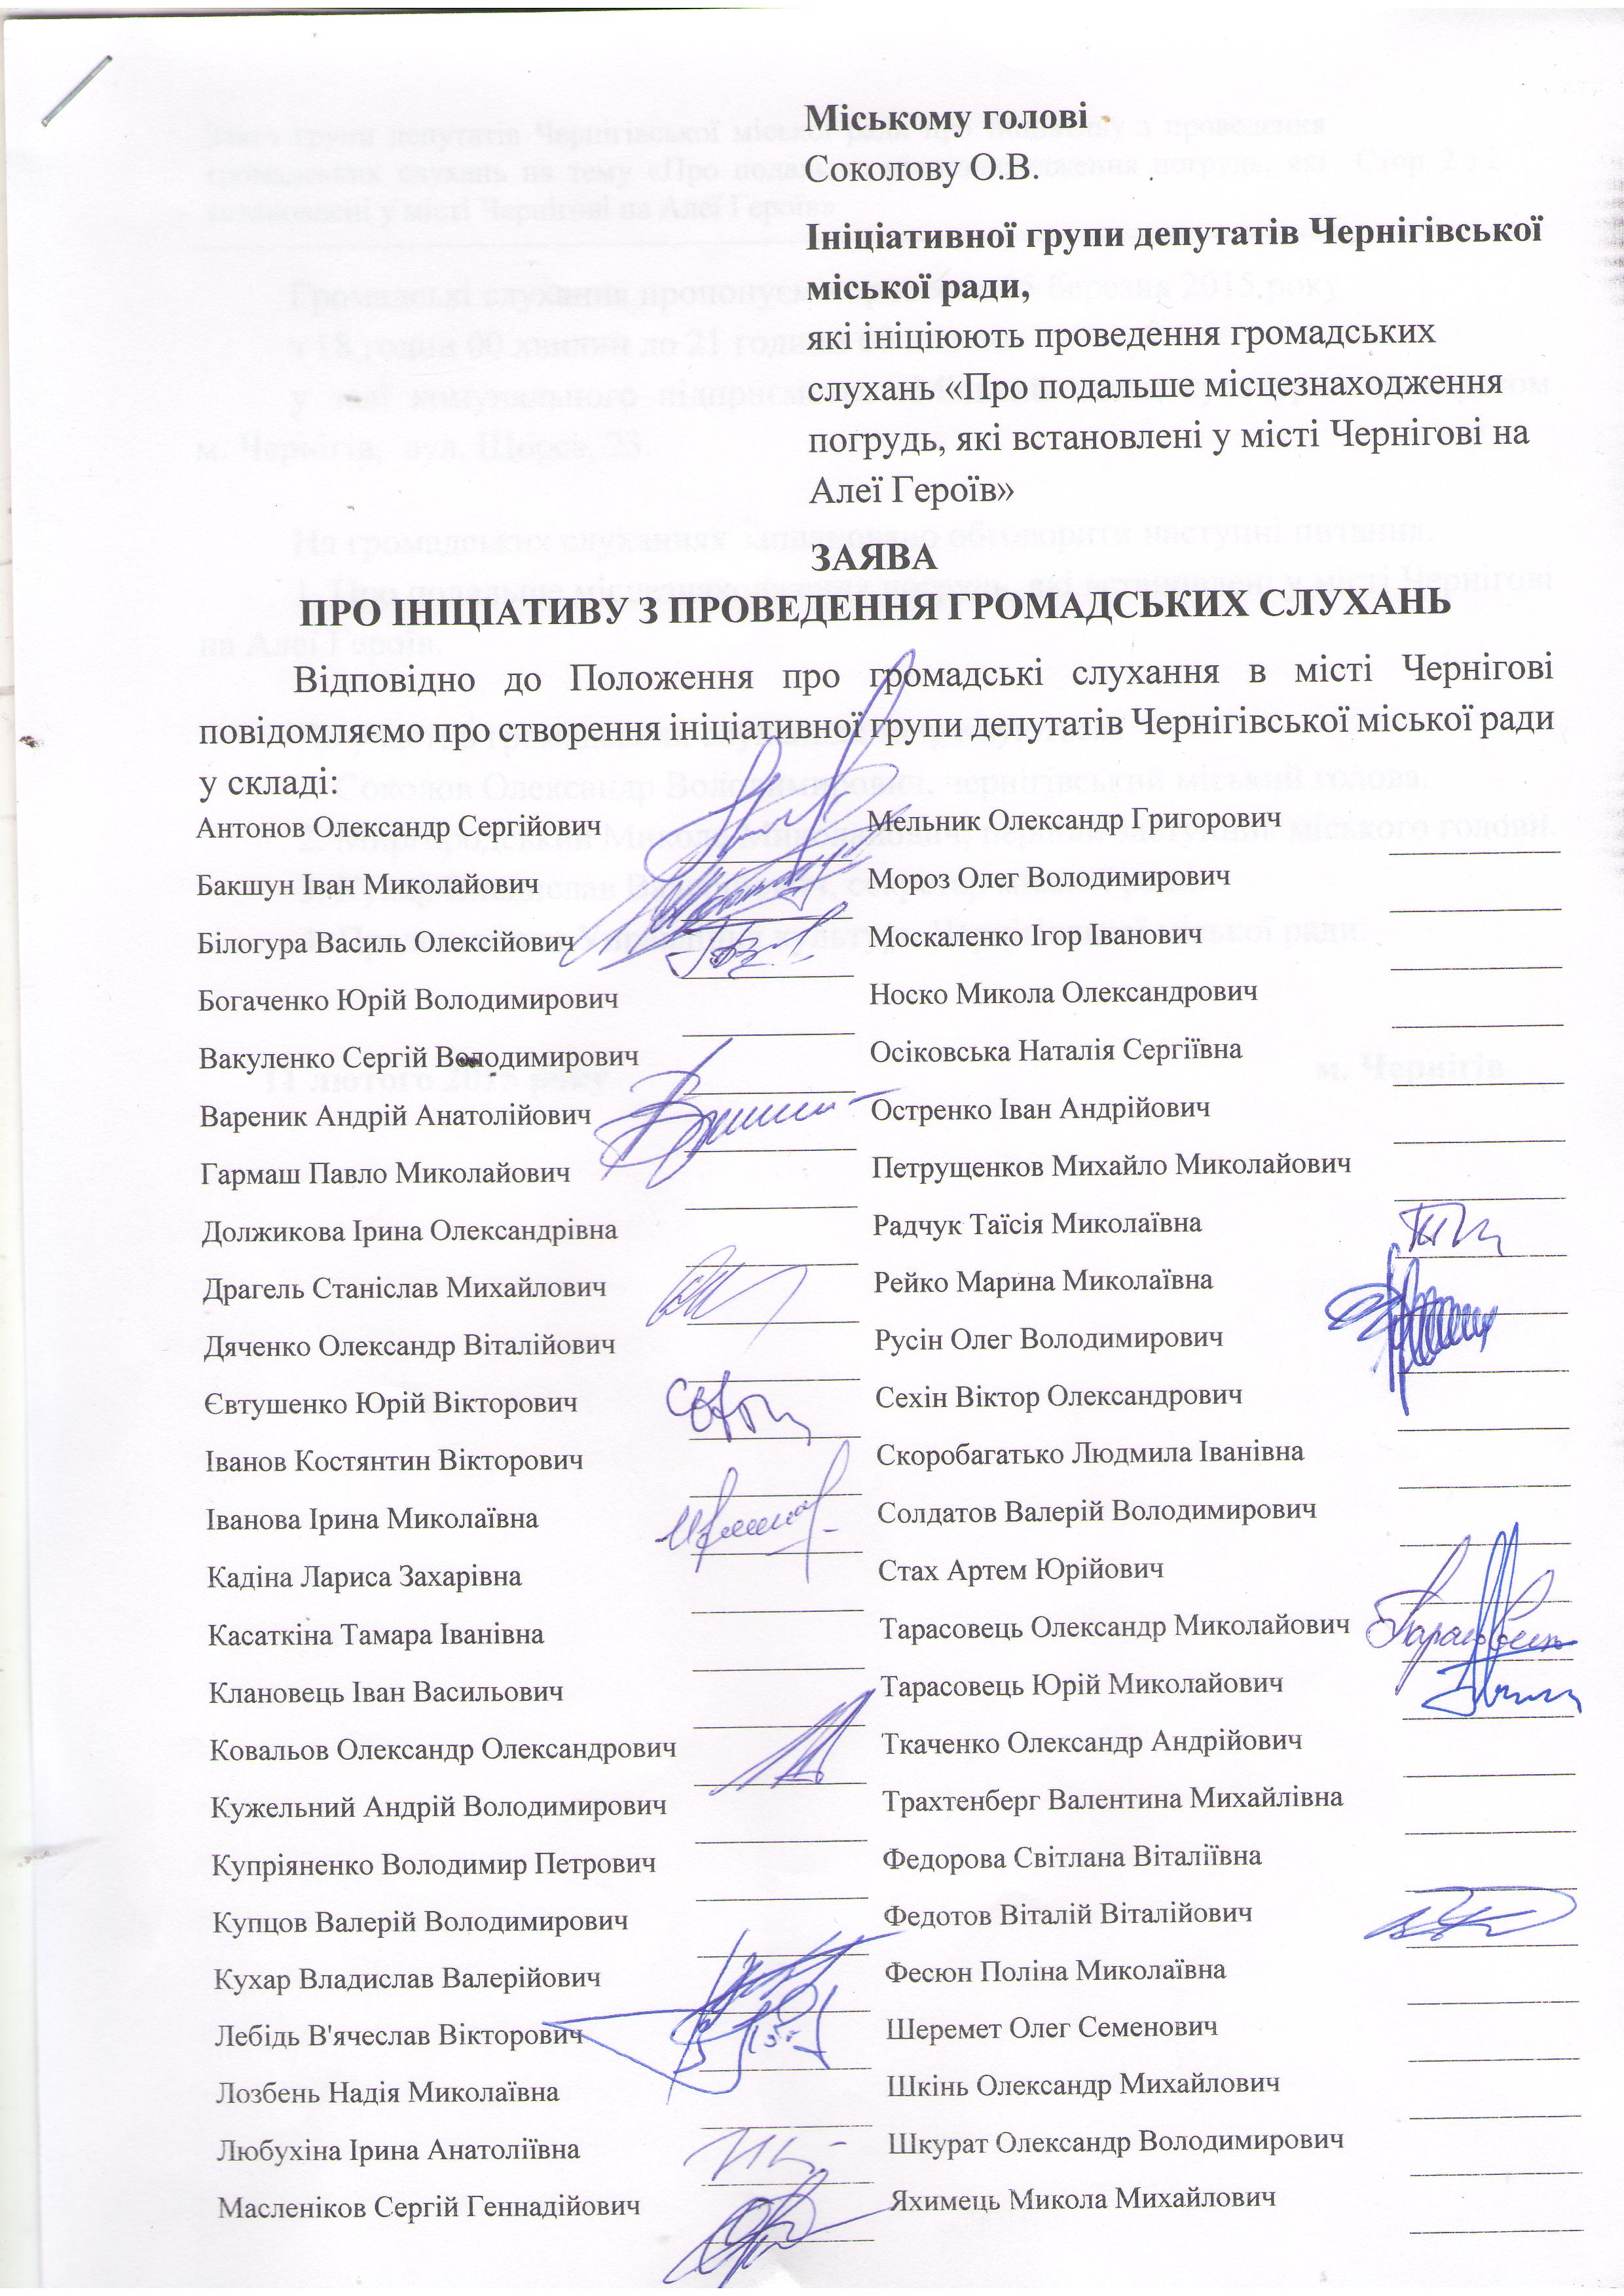 Міському голові
Соколову О.В.
Ініціативної групи депутатів Чернігівської
міської ради,
які ініціюють проведення громадських
слухань «Про подальше місцезнаходження
погрудь, які встановлені у місті Чернігові на
Алеї Героїв»
ЗАЯВА
ПРО ІНІЦІАТИВУ З ПРОВЕДЕННЯ ГРОМАДСЬКИХ СЛУХАНЬ
Відповідно до Положення про громадські слухання в місті Чернігові
повідомляємо про створення ініціативної групи депутатів Чернігівської міської ради
у складі:
Антонов Олександр Сергійович
Бакшун Іван Миколайович
Білогура Василь Олексійович
Богаченко Юрій Володимирович
Вакуленко Сергій Володимирович
Вареник Андрій Анатолійович
Гармаш Павло Миколайович
Должикова Ірина Олександрівна
Драгель Станіслав Михайлович
Дяченко Олександр Віталійович
Євтушенко Юрій Вікторович
Іванов Костянтин Вікторович
Іванова Ірина Миколаївна
Кадіна Лариса Захарівна
Касаткіна Тамара Іванівна
Клановець Іван Васильович
Ковальов Олександр Олександрович
Кужельний Андрій Володимирович
Купріяненко Володимир Петрович
Купцов Валерій Володимирович
Кухар Владислав Валерійович
Лебідь В'ячеслав Вікторович
Лозбень Надія Миколаївна
Любухіна Ірина Анатоліївна
Масленіков Сергій Геннадійович
Мельник Олександр Григорович
Мороз Олег Володимирович
Москаленко Ігор Іванович
Носко Микола Олександрович
Осіковська Наталія Сергіївна
Остренко Іван Андрійович
Петрущенков Михайло Миколайович
Радчук Таїсія Миколаївна
Рейко Марина Миколаївна
Русін Олег Володимирович
Сехін Віктор Олександрович
Скоробагатько Людмила Іванівна
Солдатов Валерій Володимирович
Стах Артем Юрійович
Тарасовець Олександр Миколайович
Тарасовець Юрій Миколайович
Ткаченко Олександр Андрійович
Трахтенберг Валентина Михайлівна
Федорова Світлана Віталіївна
Федотов Віталій Віталійович
Фесюн Поліна Миколаївна
Шеремет Олег Семенович
Шкінь Олександр Михайлович
Шкурат Олександр Володимирович
Яхимець Микола Михайлович